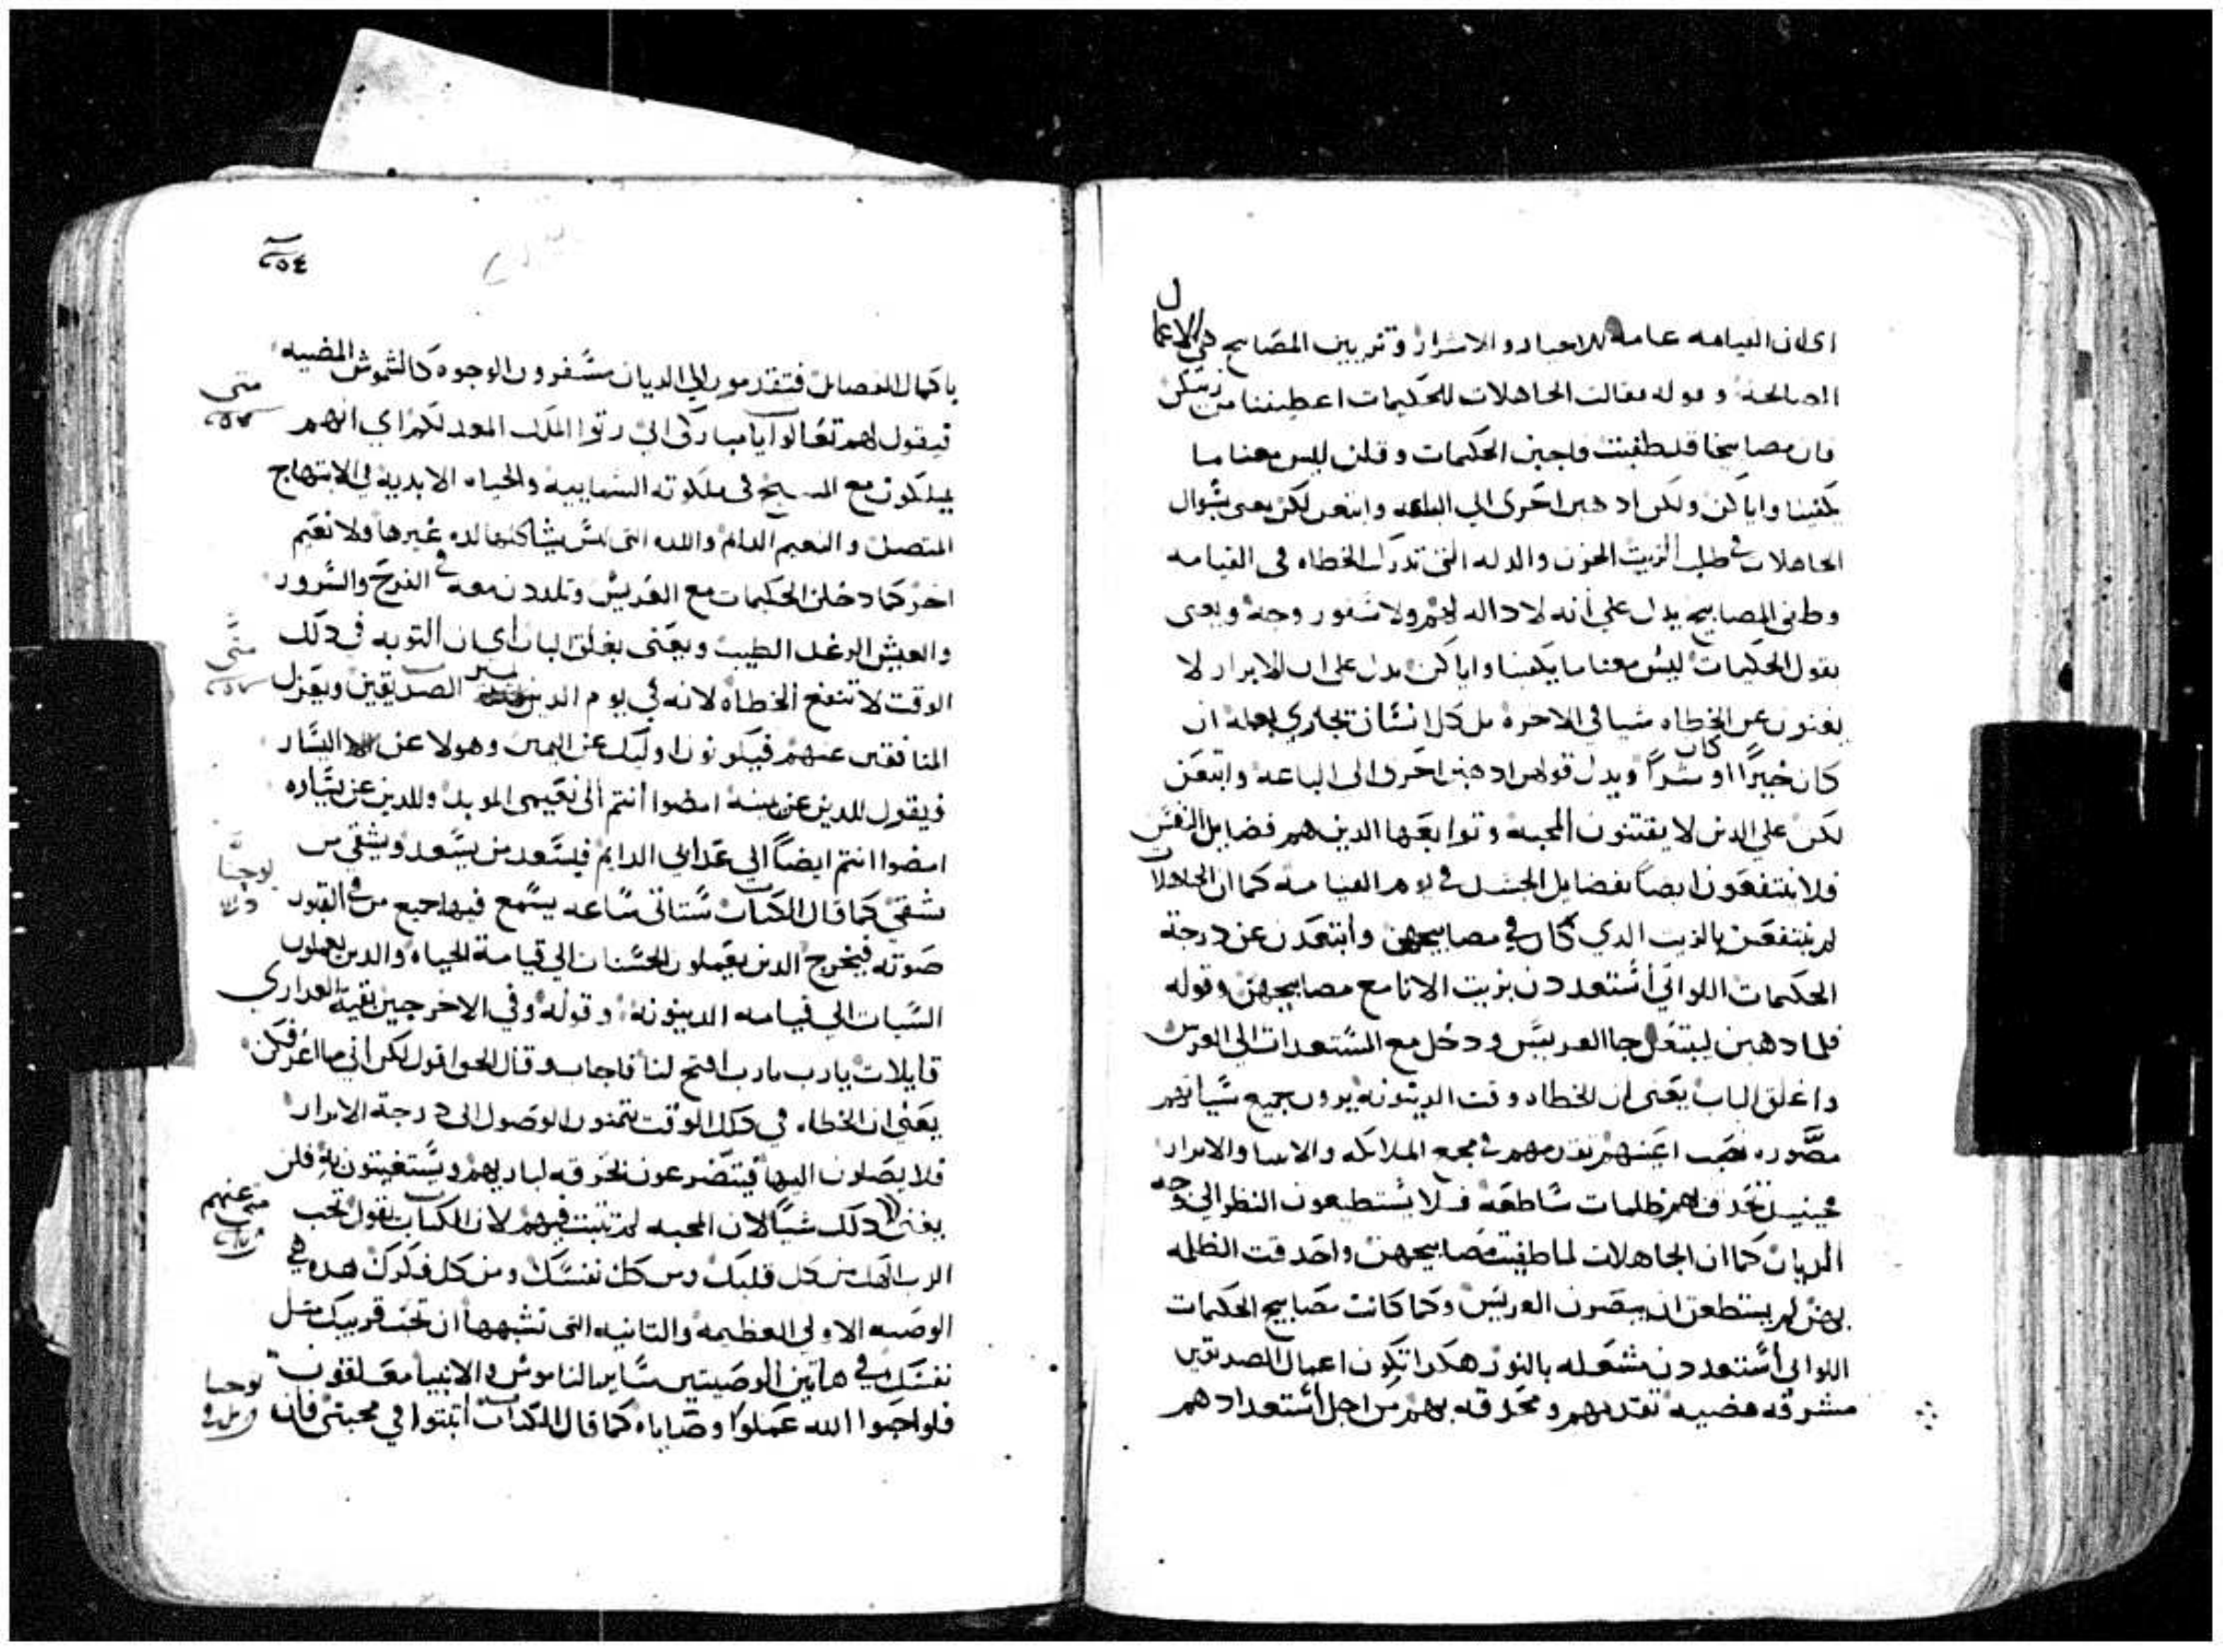 اى ان القيامه عامه للاخيار والاشرار وتزيين المصابيح هي الاعمال
الصالحه وقوله فقالت الجاهلات للحكيمات اعطيننا من زيتكن
فان مصابيحنا قد طفيت فاجبن الحكيمات وقلن ليس معنا ما
يكفينا واياكن ولكن ادهبن احرى الى الباعه وابتعن لكن يعنى بسوال
الجاهلات في طلب الزيت الحزن والدله التى تدرك الخطاه فى القيامه
وطفى المصابيح يدل على أنه لا داله لهم ولا سفور وجه ويعنى
بقول الحكيمات ليس معنا ما يكفينا واياكن يدل على ان الابرار لا
يغنون عن الخطاه شيا في الاخره بل كل انسان يجازي بعمله ان
كان خيرًا او كان شرًا ويدل قولهن ادهبن احرى الى الباعه وابتعن
لكن علي الدين لا يقتنون المحبه وتوابعها الدين هم فضايل النفس
فلا ينتفعون ايضًا بفضايل الجسد في يوم القيامه كما ان الجاهلات
لم ينتفعن بالزيت الدي كان في مصابيحهن وأبتعدن عن درجة
الحكيمات اللواتي أستعددن بزيت الانا مع مصابيحهن وقوله
فلما دهبن ليبتعن جا العريس ودخل مع المستعدات الى العرس
واغلق الباب يعنى ان الخطاه وقت الدينونه يرون جميع سياتهم
مصوره نصب اعينهم تقدمهم في مجمع الملايكه والانبيا والابرار
حينيد تحدق بهم ظلمات ساطعه فلا يستطيعون النظر الى وجه
الديان كما ان الجاهلات لما طفيت مصابيحهن واحدقت الظلمه
بهن لم يستطعن ان يبصرن العريس وكما كانت مصابيح الحكيمات
اللواتى أستعددن مشعله بالنور هكدا تكون اعمال الصديقين
مشرقه مضيه تقدمهم ومحدقه بهم من اجل أستعدادهم
باكمال الفضايل فيتقدمون الي الديان مسفرون الوجوه كالشموش المضيه
متى
فيقول لهم تعالوا يا مباركى ابى رتوا الملك المعد لكم اي انهم
يملكون مع المسيح فى ملكوته السماييه والحياه الابديه في الابتهاج
المتصل والنعيم الدايم واللده التى ليس يشاكلها لده غيرها ولا نعيم
اخر كما دخلن الحكيمات مع العريس وتلددن معه في الفرح والسرور
متى
والعيش الرغد الطيب ويعنى بغلق الباب أى ان التوبه فى دلك
الوقت لا تنفع الخطاه لانه في يوم الدين الصديقين ويعزل
المنافقين عنهم فيكونون اوليك عن اليمين وهولا عن اليسار
ويقول للدين عن يمينه امضوا أنتم الى نعيمى الموبد وللدين عن يساره
يوحنا
امضوا انتم ايضًا الي عدابي الدايم فيسعد من يسعد ويشقي من
يشقي كما قال الكتاب ستاتى ساعه يسمع فيها جميع من في القبور
صوته فيخرج الدين يعملون الحسنات الى قيامة الحياه والدين يعملون
السيات الى قيامه الدينونه وقوله وفي الاخر جين بقية العداري
قايلات يارب يارب افتح لنا فاجاب وقال الحق اقول لكن اني ما اعرفكن
يعني ان الخطاه في دلك الوقت يتمنون الوصول الى درجة الابرار
فلا يصلون اليها فيتضرعون بحرقه لباريهم ويستغيتون به فلن
يغنى عنهم دلك شيًا لان المحبه لم تتبت فيهم لان الكتاب يقول تحب
متى
الرب الهك من كل قلبك ومن كل نفسك ومن كل فكرك هده هي
الوصيه الاولي العظيمه والتانيه التى تشبهها أن تحب قريبك متل
نفسك في هاتين الوصيتين ساير الناموس والانبيا معلقون
يوحنا
فلو احبوا الله عملوا وصاياه كما قال الكتاب أتبتوا في محبتى فان